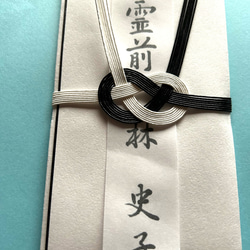 霊前
林 史子